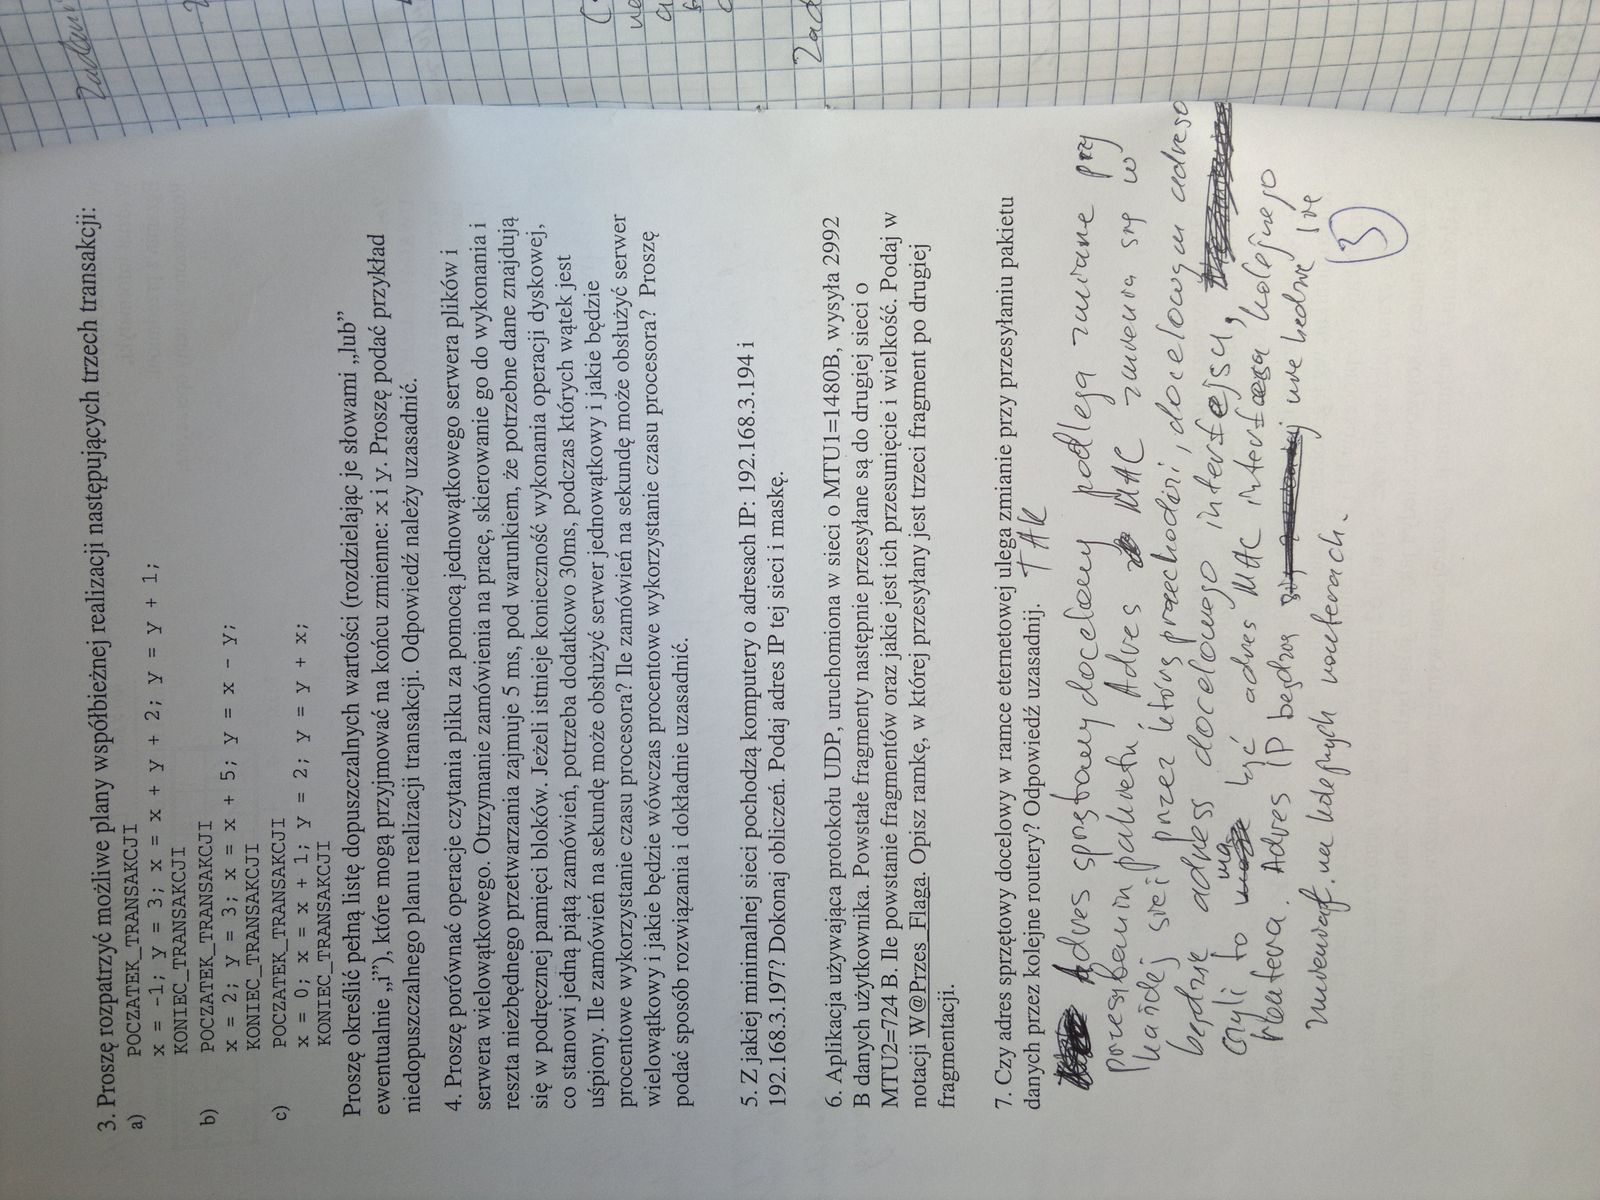 3. Proszę rozpatrzyć możliwe plany współbieżnej realizacji następujących trzech transakcji:
a) POCZATEK_TRANSAKCJI
x = -1; y = 3; x = x + y + 2; y = y + 1;
KONIEC_TRANSAKCJI
b) POCZATEK_TRANSAKCJI
x = 2; y = 3; x = x + 5; y = x - y;
KONIEC_TRANSAKCJI
c) POCZATEK_TRANSAKCJI
x = 0; x = x + 1; y = 2; y = y + x;
KONIEC_TRANSAKCJI
Proszę określić pełną listę dopuszczalnych wartości (rozdzielając je słowami „lub”
ewentualnie „i”), które mogą przyjmować na końcu zmienne: x i y. Proszę podać przykład
niedopuszczalnego planu realizacji transakcji. Odpowiedź należy uzasadnić.
4. Proszę porównać operacje czytania pliku za pomocą jednowątkowego serwera plików i
serwera wielowątkowego. Otrzymanie zamówienia na pracę, skierowanie go do wykonania i
reszta niezbędnego przetwarzania zajmuje 5 ms, pod warunkiem, że potrzebne dane znajdują
się w podręcznej pamięci bloków. Jeżeli istnieje konieczność wykonania operacji dyskowej,
co stanowi jedną piątą zamówień, potrzeba dodatkowo 30ms, podczas których wątek jest
uśpiony. Ile zamówień na sekundę może obsłużyć serwer jednowątkowy i jakie będzie
procentowe wykorzystanie czasu procesora? Ile zamówień na sekundę może obsłużyć serwer
wielowątkowy i jakie będzie wówczas procentowe wykorzystanie czasu procesora? Proszę
podać sposób rozwiązania i dokładnie uzasadnić.
5. Z jakiej minimalnej sieci pochodzą komputery o adresach IP: 192.168.3.194 i
192.168.3.197? Dokonaj obliczeń. Podaj adres IP tej sieci i maskę.
6. Aplikacja używająca protokołu UDP, uruchomiona w sieci o MTU1=1480B, wysyła 2992
B danych użytkownika. Powstałe fragmenty następnie przesyłane są do drugiej sieci o
MTU2=724 B. Ile powstanie fragmentów oraz jakie jest ich przesunięcie i wielkość. Podaj w
notacji W@Przes_Flaga. Opisz ramkę, w której przesyłany jest trzeci fragment po drugiej
fragmentacji.
7. Czy adres sprzętowy docelowy w ramce eternetowej ulega zmianie przy przesyłaniu pakietu
danych przez kolejne routery? Odpowiedź uzasadnij. TAK
Adres sprzętowy docelowy podlega zmianie przy
przesyłaniu pakietu Adres MAC zmienia się w
każdej sieci przez którą przechodzi, docelowym adresem
będzie adres docelowego interfejsu,
czyli to ma być adres MAC interfejsu kolejnego
routera. Adres IP będzie nie będzie się
zmieniał na kolejnych routerach.
3
Zadani
Zad